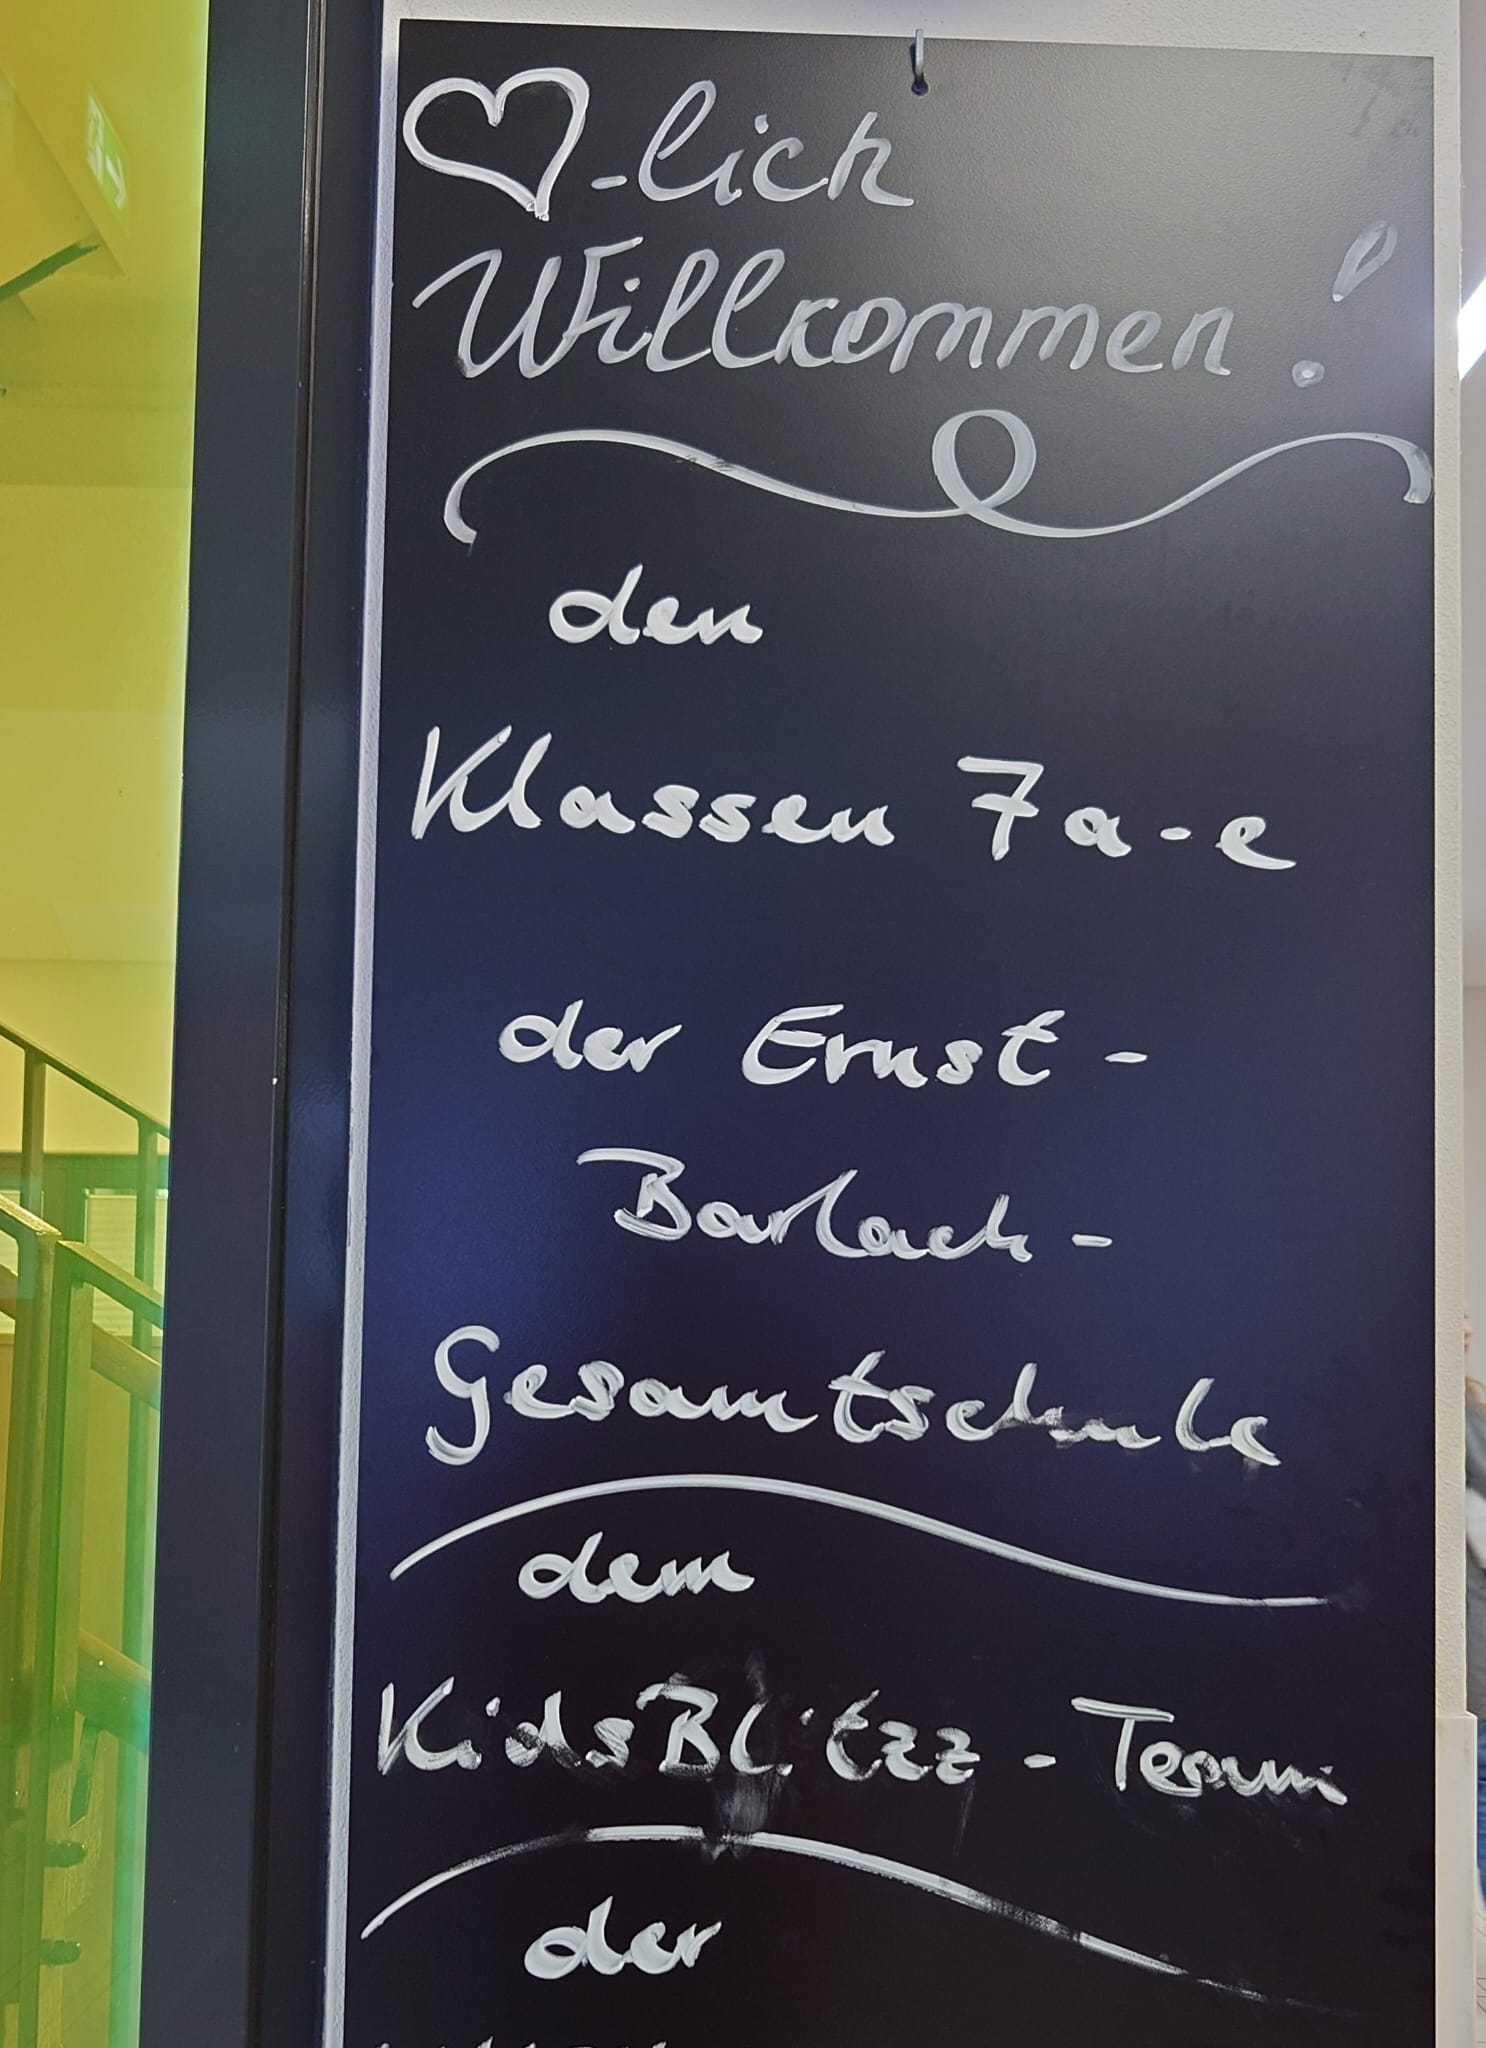 ♡-lich
Willkommen!
den
Klassen 7a-e
der Ernst-
Barlach-
Gesamtschule
dem
KidsBlitzz-Team
der